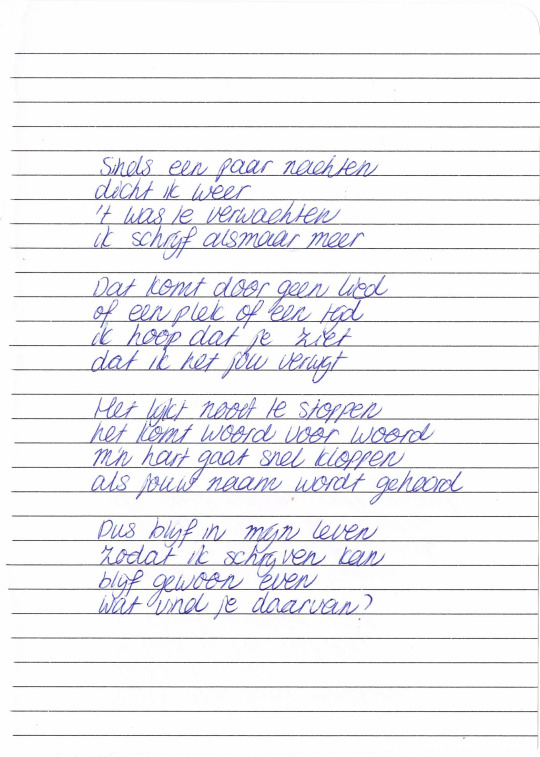 Sinds een paar nachten
dicht ik weer
't was te verwachten
ik schrijf alsmaar meer
Dat komt door geen lied
of een plek of een tijd
ik hoop dat je ziet
dat ik het jou verwijt
Het lijkt nooit te stoppen
het komt woord voor woord
m'n hart gaat snel kloppen
als jouw naam wordt gehoord
Dus blijf in mijn leven
zodat ik schrijven kan
blijf gewoon even
wat vind je daarvan?